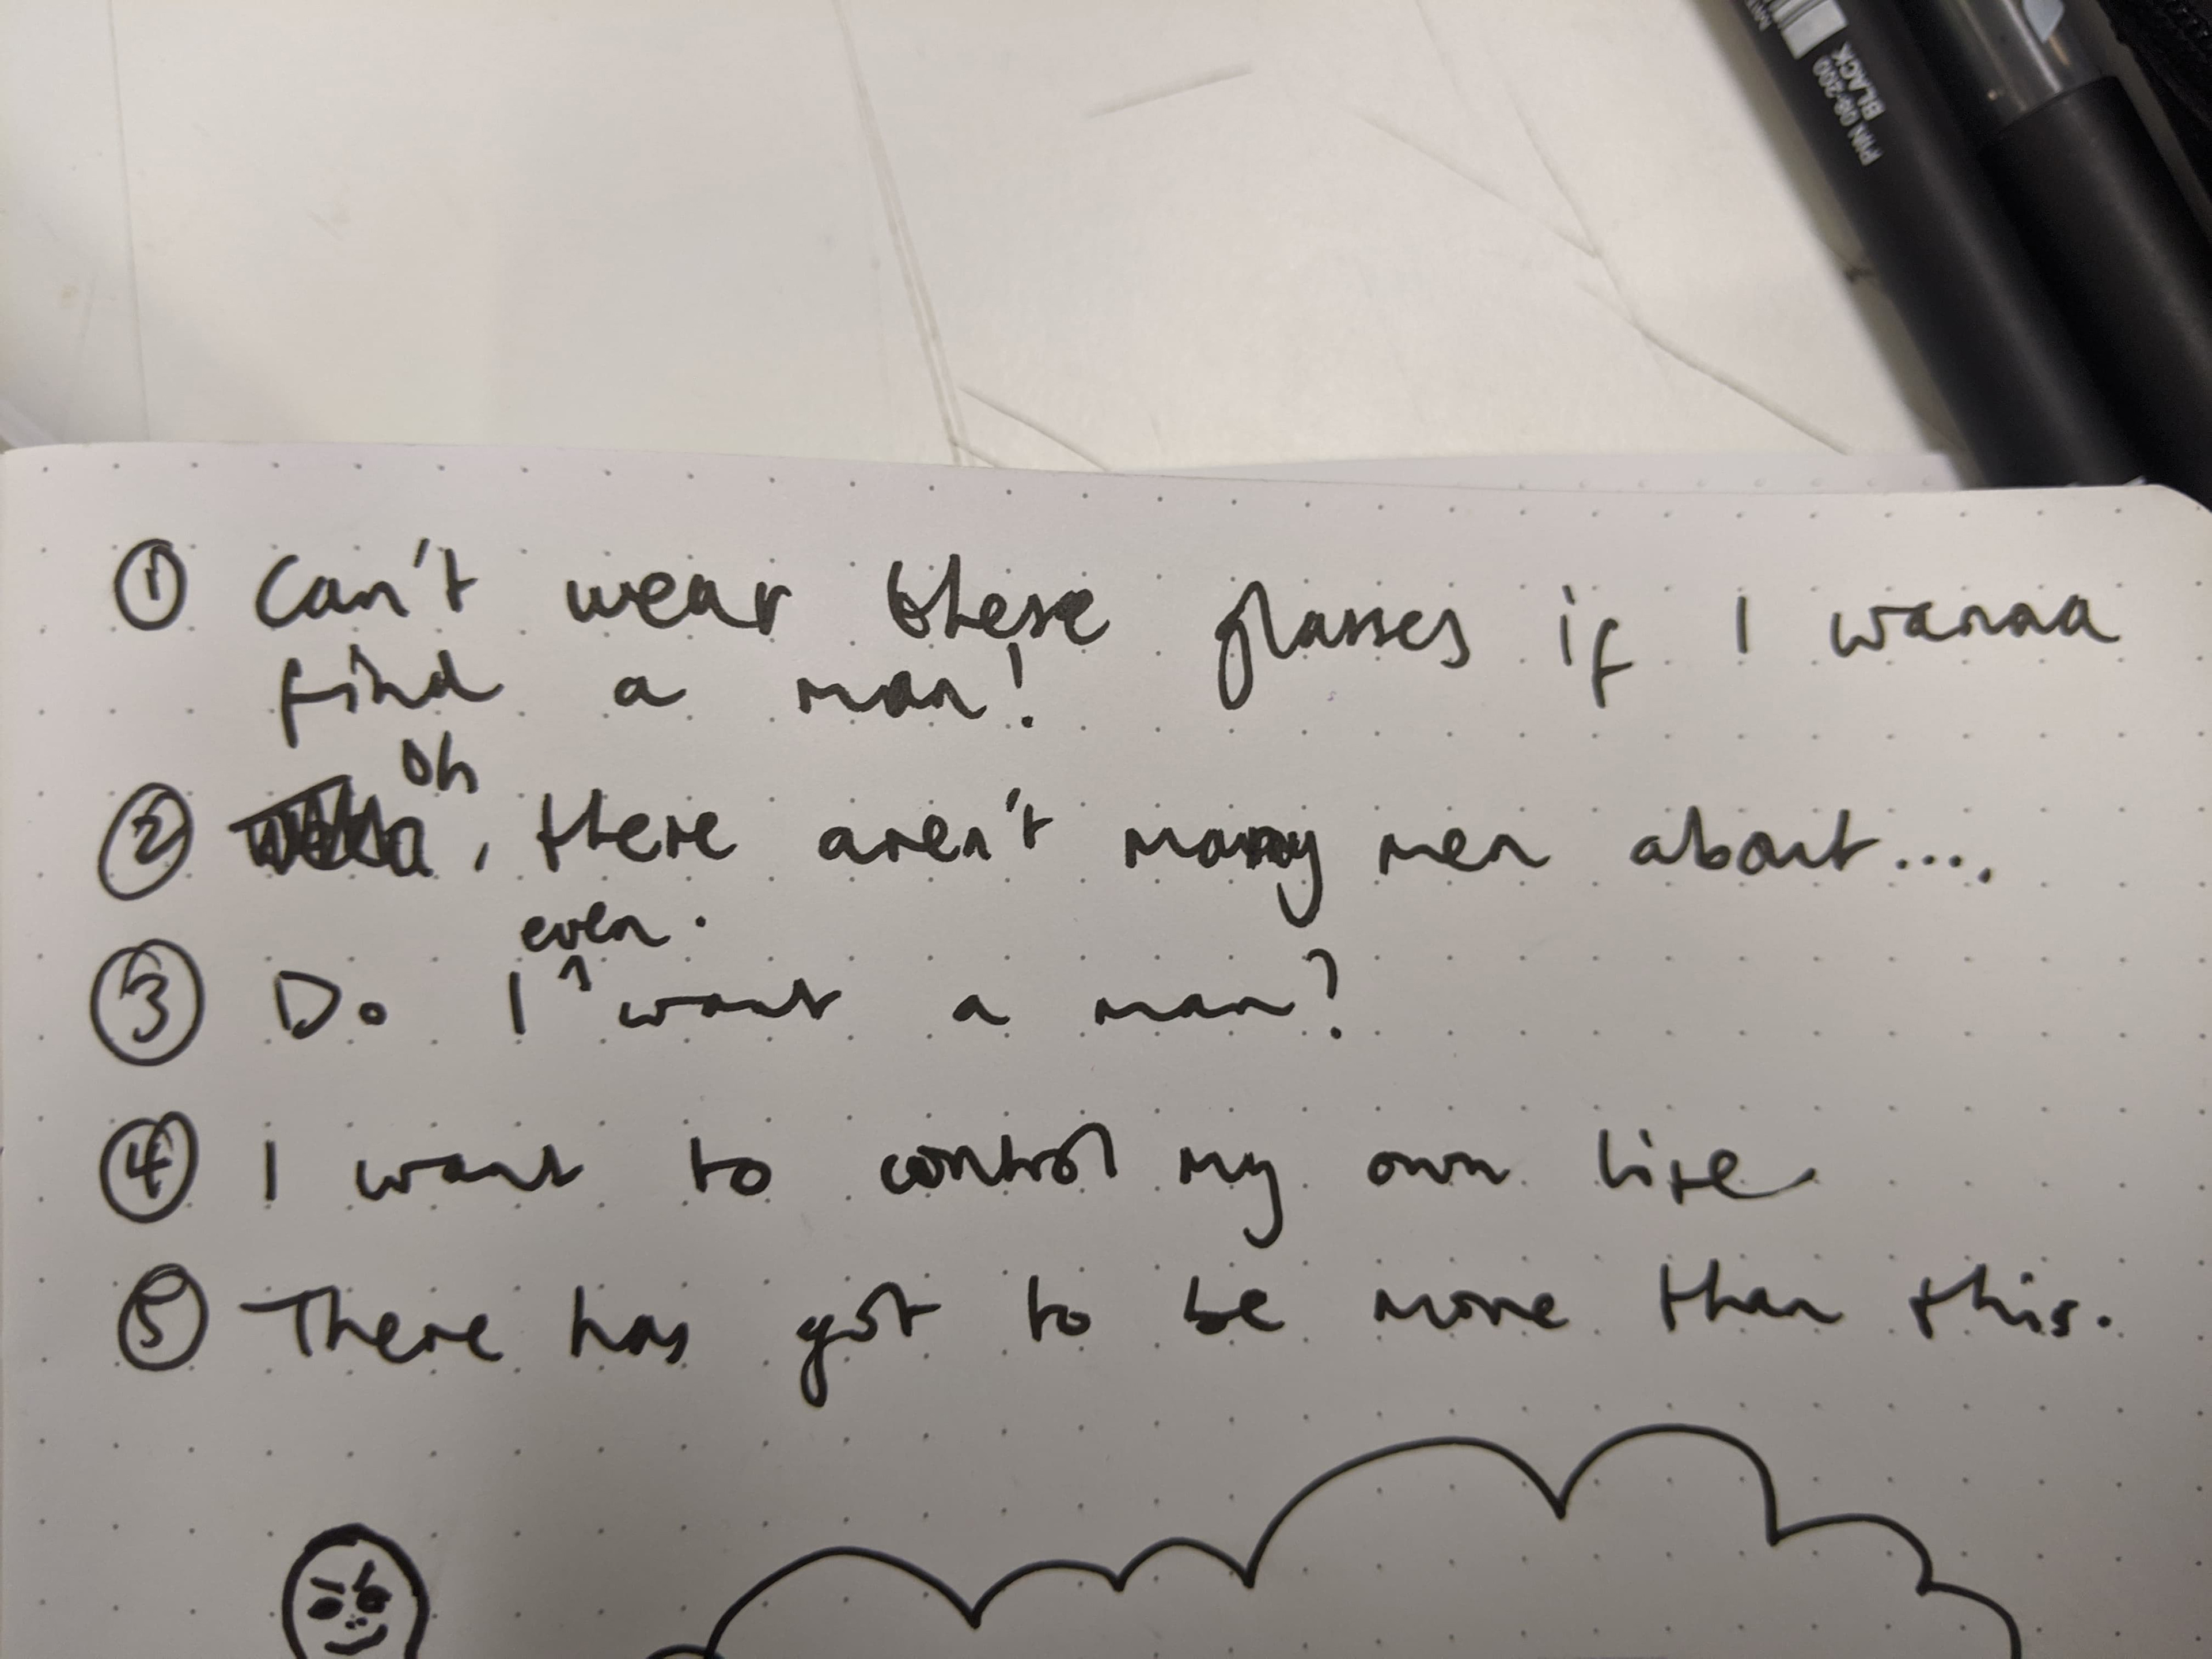 PIN 08-200
BLACK
① Can't wear these glasses if I wanna
find a man!
② Oh, there aren't many men about....
③ Do I even want a man?
④ I want to control my own life
⑤ There has got to be more than this.